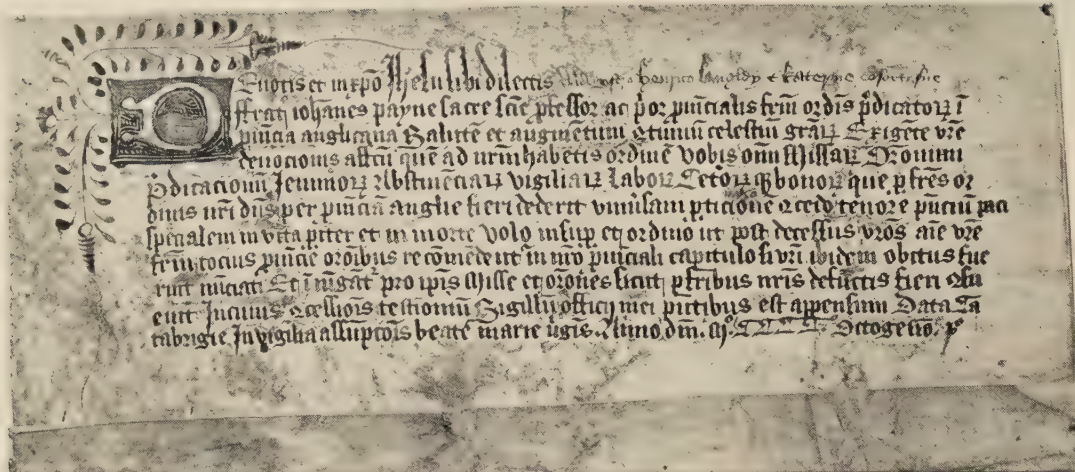 Deuotis et in xp̄o Jhesu sibi dilectis henrico langley et katerine consorti sue
ffrat᷑ ioh̄anes payne sacre scīe p̄fessor ac p̄or ꝓuīncialis frm̄ ordīs p̄dicatoꝝ ī
ꝓuīcia anglicana Salutē et augmētum ꝯtinuū celestiū grāꝝ Exigēte vr̄e
deuocionis affcū quē ad nr̄m habetis ordinē vobis oīm Missaꝝ Orōnum
P̄dicacionū Jeiunioꝝ Abstinēciaꝝ vigiliaꝝ Laboꝝ Cetoꝝqꝫ bonoꝝ que ꝑ frēs or
dinis nr̄i dn̄s per ꝓuīciā anglie fieri dederit vniuˀsam ꝑticionē ꝯcedo tenore p̄nciū
specialem in vita ꝑiter et in morte volo insuꝑ et ordino ut post decessus vr̄os aīe vr̄e
frm̄ tocius ꝓuīcie orōibus recōmēdent᷑ in nr̄o ꝓuīciali capitulo si vr̄i ibidem obitus fue
rint nūciati Et īiūgāt᷑ pro ip̄is Misse et orōnes sicut ꝓ fr̄ibus nr̄is defūctis fieri ꝯsu
euit Jn cuius ꝯcessiōīs testimoniū Sigillū officij mei p̄ntibus est appensum Data Cā
tabrigie Jn vigilia assūpcōīs beate marie v̓gīs Anno dn̄i Mͦ CCCC Octogesiō pͦ